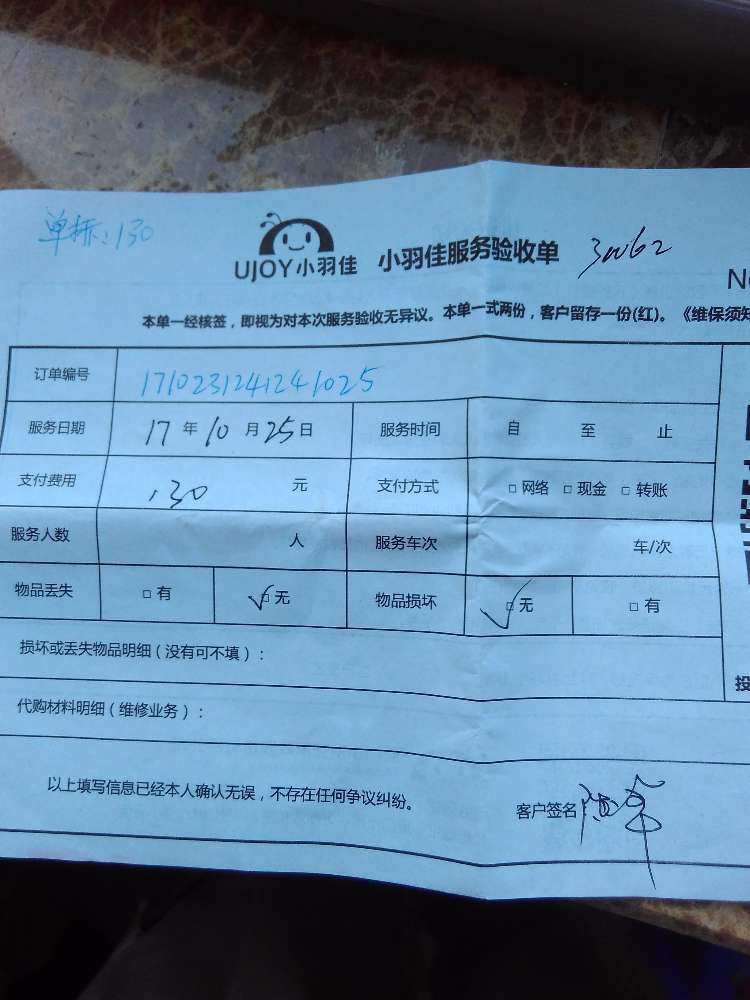 单标:130
UJOY小羽佳 小羽佳服务验收单
No
本单一经核签,即视为对本次服务验收无异议。本单一式两份,客户留存一份(红)。《维保须知
订单编号 1710231241241025
服务日期 17年10月25日 服务时间 自 至 止
支付费用 130元 支付方式 □网络 □现金 □转账
服务人数 人 服务车次 车/次
物品丢失 □有 ☑无 物品损坏 ☑无 □有
损坏或丢失物品明细(没有可不填):
投
代购材料明细(维修业务):
以上填写信息已经本人确认无误,不存在任何争议纠纷。
客户签名